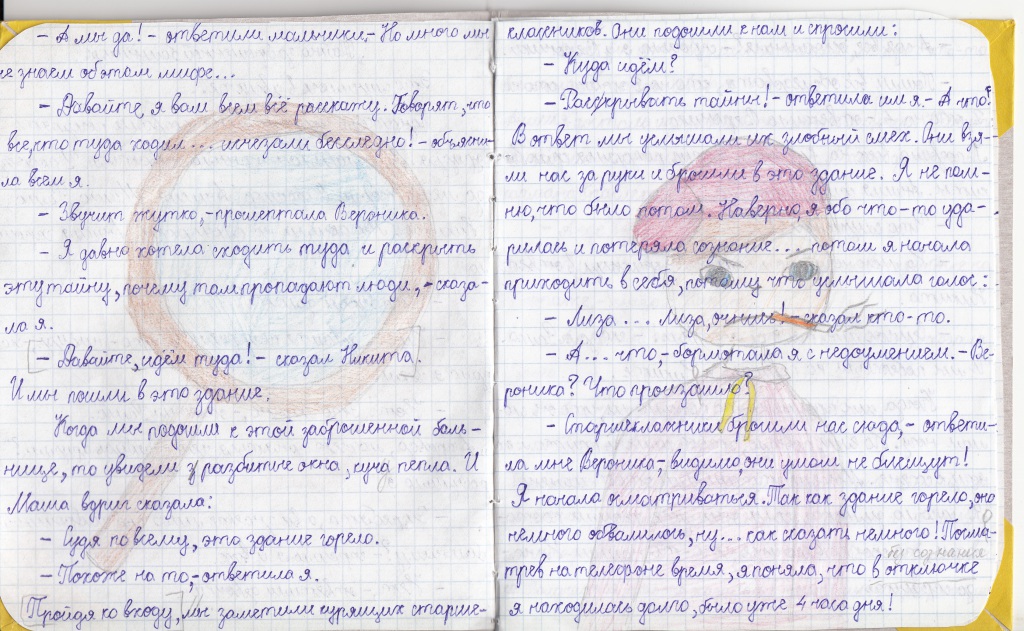 - А мы да! - ответили мальчики, - Но много мы
не знаем об этом мифе...
- Давайте, я вам всем всё расскажу. Говорят, что
все, кто туда ходил... исчезали бесследно! - объясни-
ла всем я.
- Звучит жутко, - прошептала Вероника.
- Я давно хотела сходить туда и раскрыть
эту тайну, почему там пропадают люди, - сказа-
ла я.
- Давайте, идём туда! - сказал Никита.
И мы пошли в это здание.
Когда мы подошли к этой заброшенной боль-
нице, то увидели разбитые окна, куча пепла. И
Маша вдруг сказала:
- Судя по всему, это здание горело.
- Похоже на то, - ответила я.
Пройдя ко входу, мы заметили курящих старше-
классников. Они подошли к нам и спросили:
- Куда идём?
- Раскрывать тайны! - ответила им я. - А что?
В ответ мы услышали их злобный смех. Они взя-
ли нас за руки и бросили в это здание. Я не пом-
ню, что было потом. Наверно, я обо что-то уда-
рилась и потеряла сознание... потом я начала
приходить в себя, потому что услышала голос:
- Лиза... Лиза, очнись! - сказал кто-то.
- А... что, - бормотала я с недоумением. - Ве-
роника? Что произошло?
- Старшеклассники бросили нас сюда, - ответи-
ла мне Вероника, - видимо, они умом не блещут!
Я начала осматриваться. Так как здание горело, оно
немного обвалилось, ну... как сказать немного! Посмо-
без сознания
трев на телефоне время, я поняла, что в отключке
я находилась долго, было уже 4 часа дня!